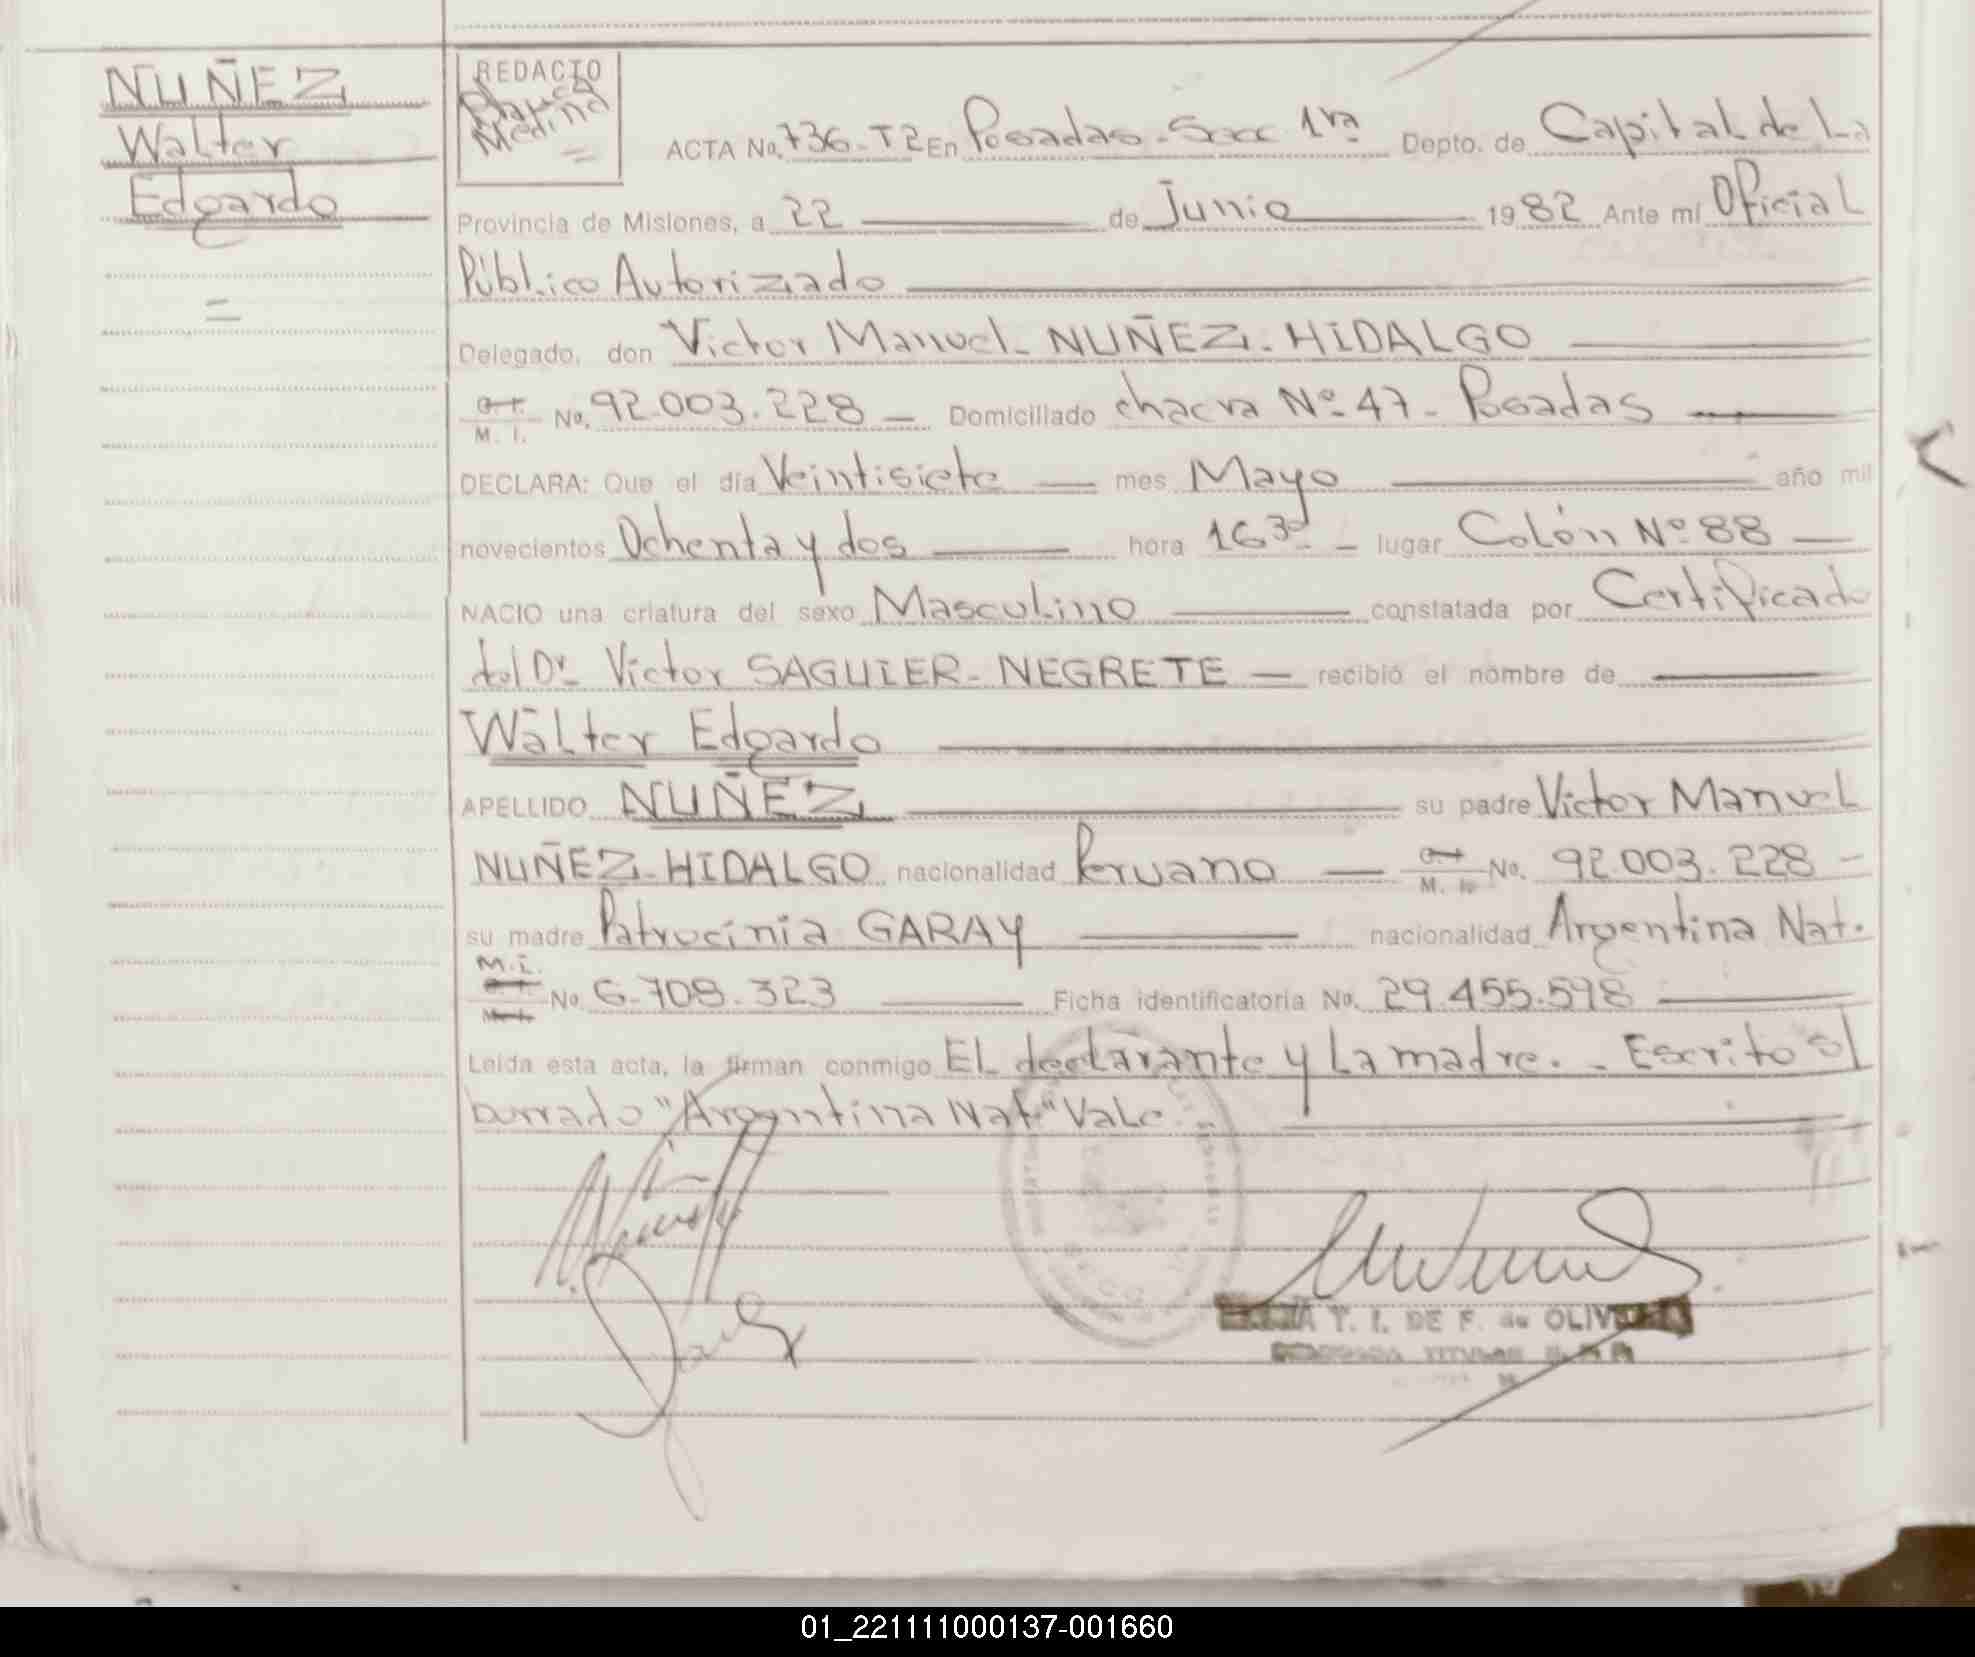 NUÑEZ
Walter
Edgardo
=
REDACTO
Medina
=
ACTA No. 736-T2 En Posadas-Secc 1ra Depto. de Capital de La
Provincia de Misiones, a 22 de Junio 1982 Ante mí Oficial
Público Autorizado
Delegado, don Victor Manuel- NUÑEZ-HIDALGO
M. I. No. 92.003.228 - Domiciliado chacra Nº 47- Posadas
DECLARA: Que el día Veintisiete mes Mayo año mil
novecientos Ochenta y dos hora 1630 - lugar Colón Nº 88
NACIO una criatura del sexo Masculino constatada por Certificado
del Dr Victor SAGUIER-NEGRETE recibió el nombre de
Walter Edgardo
APELLIDO NUÑEZ su padre Victor Manuel
NUÑEZ-HIDALGO nacionalidad Peruano M. I. No. 92.003.228 -
su madre Patrocinia GARAY nacionalidad Argentina Nat.
M.I.
No. 6.708.323 Ficha identificatoria No. 29.455.598
Leída esta acta, la firman conmigo El declarante y La madre. - Escrito s/
borrado "Argentina Nat" Vale.
T. I. DE F. de
01_221111000137-001660